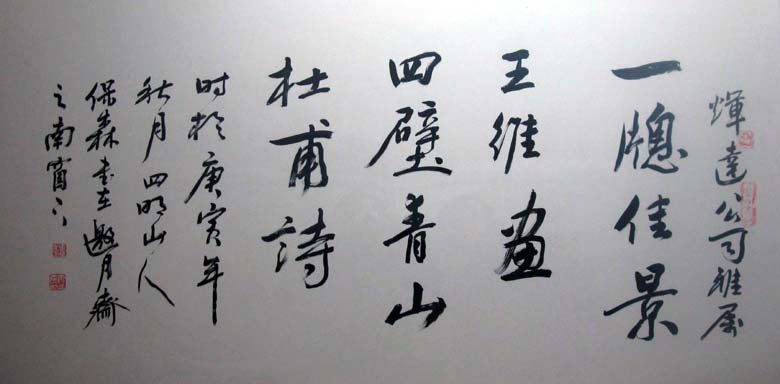 煇達公司雅屬
一牕佳景
王維画
四壁青山
杜甫詩
时於庚寅年
秋月四明山人
保森书在邀月齋
之南窗下